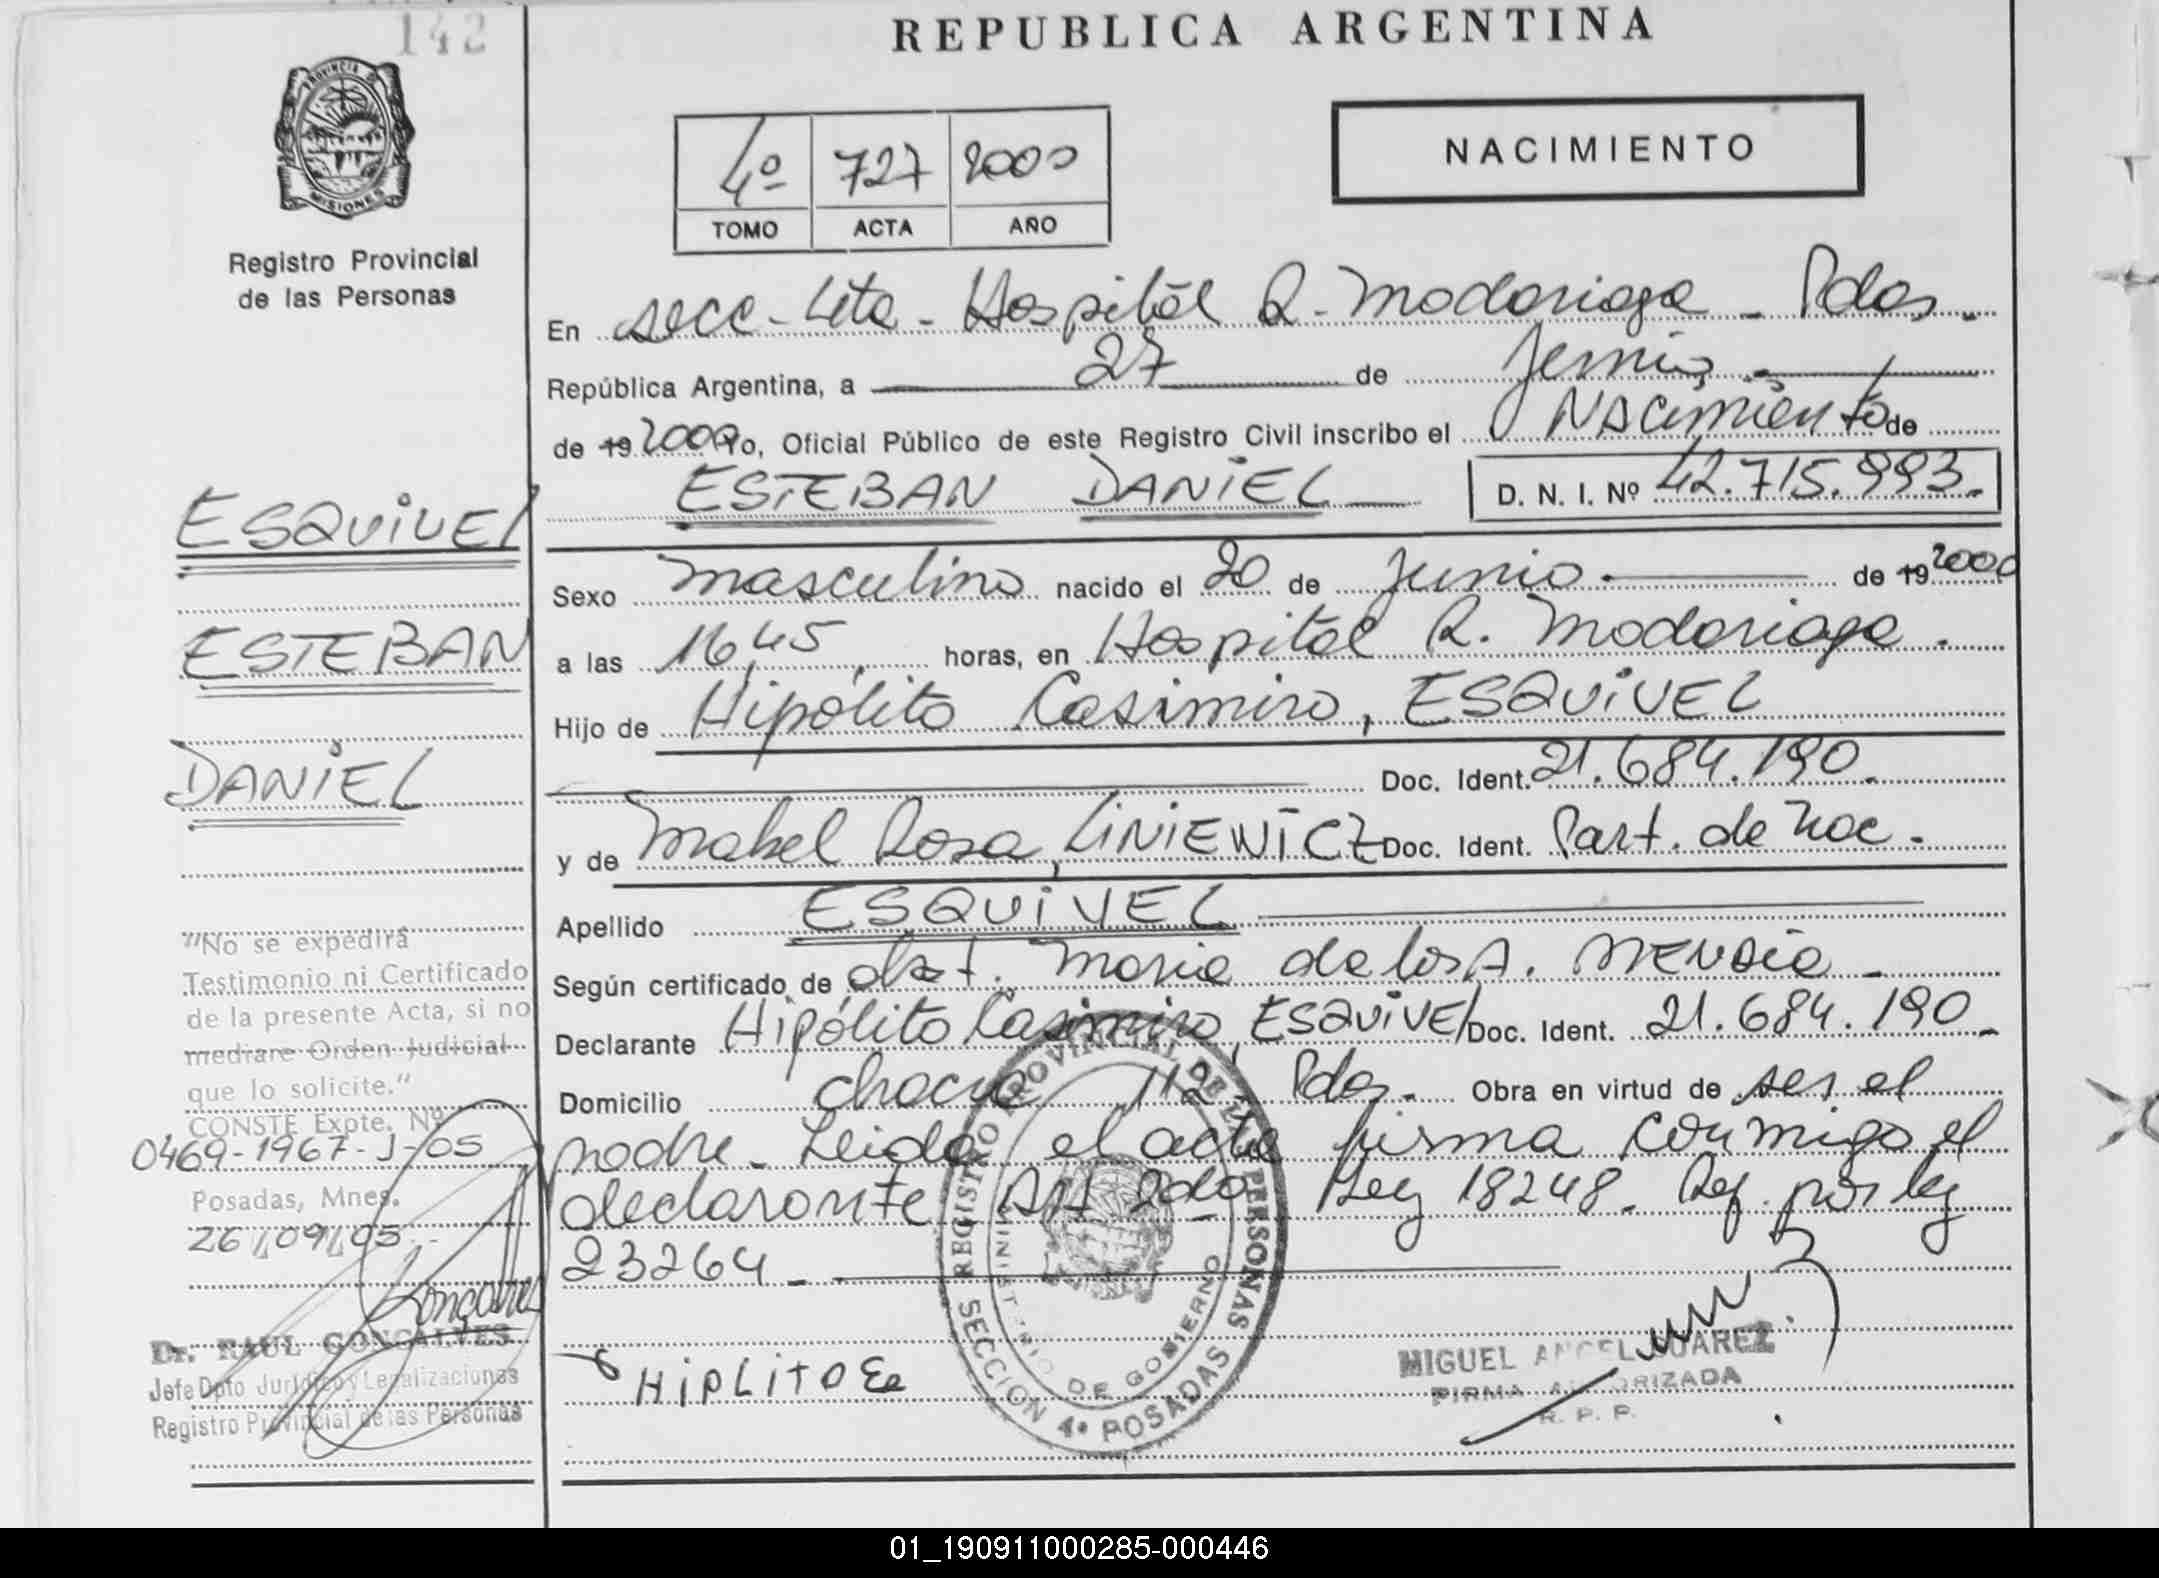 142
REPUBLICA ARGENTINA
PROVINCIA DE
MISIONES
Registro Provincial
de las Personas
4º 727 2000
TOMO ACTA AÑO
NACIMIENTO
En secc - 4ta - Hospital R. Madariaga - Pdas.
República Argentina, a 27 de Junio
de 19 2000 Yo, Oficial Público de este Registro Civil inscribo el Nacimiento de
ESTEBAN DANIEL D. N. I. Nº 42.715.993.
Sexo masculino nacido el 20 de Junio de 19 2000
a las 16,45, horas, en Hospital R. Madariaga.
Hijo de Hipólito Casimiro, ESQUIVEL
Doc. Ident. 21.684.190.
y de Mabel Rosa, LINIEWICZ Doc. Ident. Part. de Nac.
Apellido ESQUIVEL
Según certificado de obst. Maria de los A.
Declarante Hipólito Casimiro, ESQUIVEL Doc. Ident. 21.684.190
Domicilio 112, Pdas. Obra en virtud de ser el
padre - Leida el acta firma conmigo el
declarante Art 2do Ley 18248. Ref. por ley
23264
HIPLITO Es
REGISTRO PROVINCIAL DE LAS PERSONAS
MINISTERIO DE GOBIERNO
SECCION 4ª POSADAS
MIGUEL ANGEL JUAREZ
FIRMA AUTORIZADA
R. P. P.
ESQUIVEL
ESTEBAN
DANIEL
"No se expedirá
Testimonio ni Certificado
de la presente Acta, si no
mediare Orden Judicial
que lo solicite."
CONSTE Expte. Nº
0469-1967-J-05
Posadas, Mnes.
26/09/05
Gonçalves
Dr. RAUL GONCALVES
Jefe Dpto Jurídico y Legalizaciones
Registro Provincial de las Personas
01_190911000285-000446